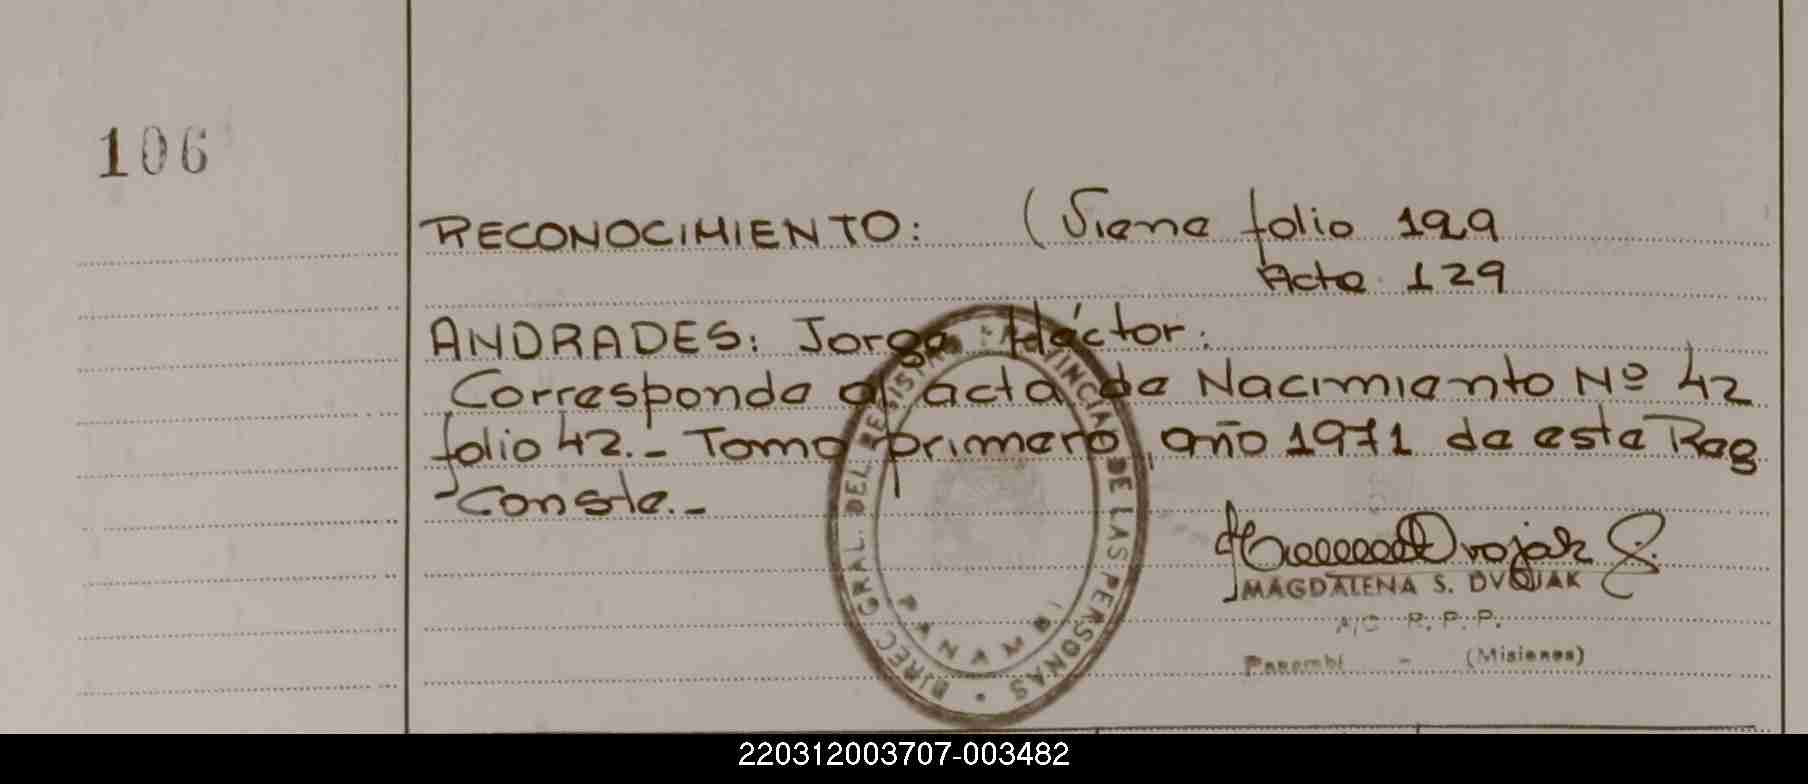 106
RECONOCIMIENTO: (Viene folio 129
Acta 129
ANDRADES: Jorge Héctor.
Corresponde al acta de Nacimiento Nº 42
folio 42.- Tomo primero, año 1971 de este Reg
-Conste.-
DIREC. GRAL. DEL REGISTRO PROVINCIAL DE LAS PERSONAS
PANAMBI
MAGDALENA S. DVOJAK
A/C R. P. P.
Panambí - (Misiones)
220312003707-003482